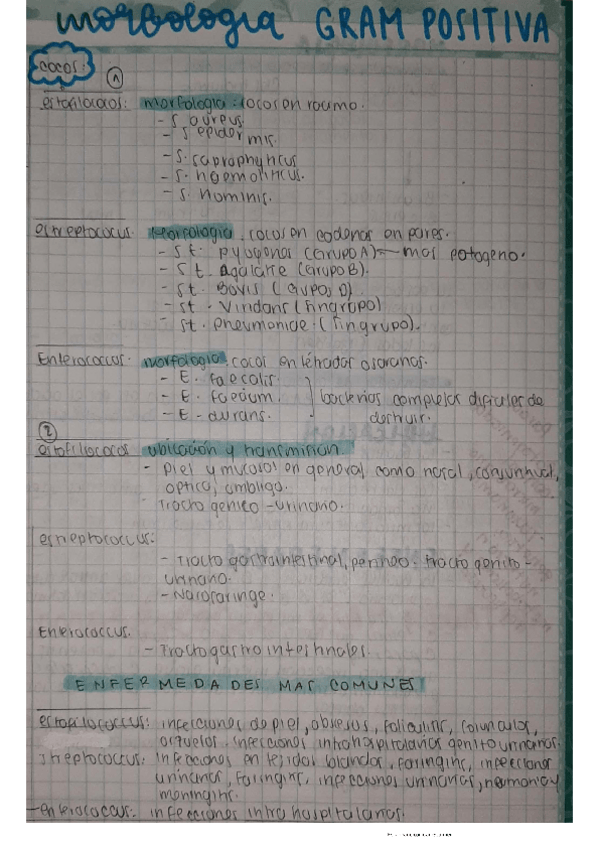 morfologia GRAM POSITIVA
cocos:
1
estafilococos: morfologia: cocos en racimo.
- S aureus
- S epidermis.
- S. saprophyticus
- S. haemoliticus.
- S. hominis.
estreptococus. Morfologia. cocos en cadenas en pares.
- St. pyogenas (Grupo A) — mas patogeno.
- St. Agalatie (Grupo B).
- St. Bovis (Grupos D)
- St. Viridans (sin grupo)
- St. pneumoniae: (sin grupo).
Enterococcus. morfologia. cocos en tétradas o sarcinas.
- E. faecalis.
- E. faecium. bacterias complejas dificiles de
- E. durans. destruir.
2
estafiliococos ubicación y transmision
- piel y mucosas en general como nasal, conjuntival,
optica, ombligo.
Tracto genico - urinario.
estreptococcus:
- Tracto gastrointestinal, perineo. tracto genito -
urinario.
- Nasofaringe.
Enterococcus.
- Tracto gastro intestinales.
ENFERMEDADES MAS COMUNES
estafilococcus: infecciones de piel, absesos, foliculitis, forunculos,
orzuelos. infecciones intrahospitalarias genitourinarias.
Streptococcus: infecciones en tejidos blandos, faringitis, infecciones
urinarias, faringitis, infecciones urinarias, neumonia y
meningitis.
- enterococcus: infecciones intra hospitalarias.